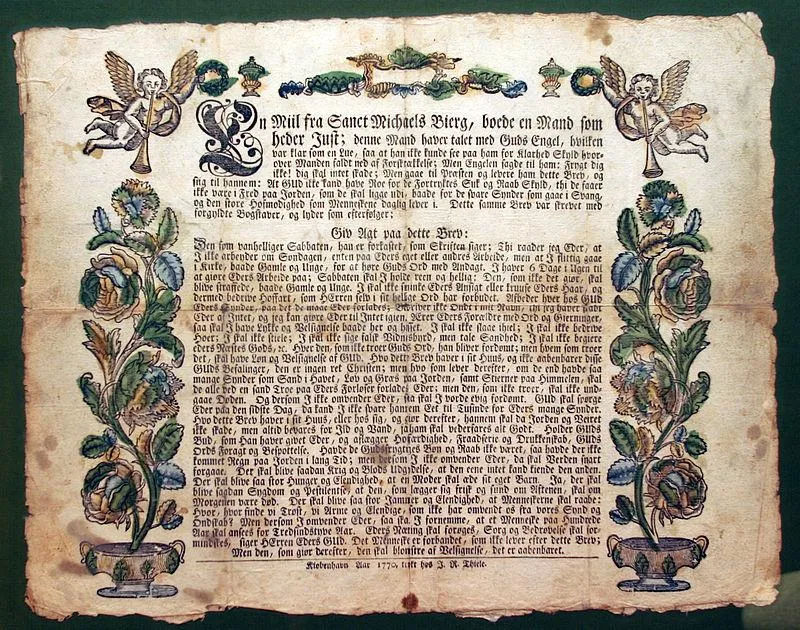 En Miil fra Sanct Michaels Bierg, boede en Mand som
heder Just; denne Mand haver talet med Guds Engel, hvilken
var klar som en Lue, saa at han ikke kunde see paa ham for Klarhed Skyld hvor-
over Manden faldt ned af Forskrækkelse; Men Engelen sagde til ham: Frygt dig
ikke! dig skal intet skade; Men gaae til Præsten og levere ham dette Brev, og
siig til hannem: At GUD ikke kand have Roe for de Fortryktes Suk og Raab Skyld, thi de faaer
ikke være i Fred paa Jorden, som de skal ligge udi, baade for de svare Synder som gaaer i Svang,
og den store Hofmodighed som Menneskene daglig lever i. Dette samme Brev var skrevet med
forgyldte Bogstaver, og lyder som efterfølger;
Giv Agt paa dette Brev:
Den som vanhelliger Sabbaten, han er forkastet, som Skriften siger; Thi raader jeg Eder, at
I ikke arbeyder om Søndagen, enten paa Eders eget eller andres Arbeide, men at I flittig gaaer
i Kirke, baade Gamle og Unge, for at høre Guds Ord med Andagt. I haver 6 Dage i Ugen til
at giøre Eders Arbeide paa; Sabbaten skal I holde reen og hellig: Den, som ikke det giør, skal
blive straffede, baade Gamle og Unge. I skal ikke sminke Eders Ansigt eller kruuse Eders Haar, og
dermed bedrive Hoffart, som HErren selv i sit hellige Ord har forbudet. Afbeder hver hos GUD
Eders Synder, paa det de maae Eder forlades; Beskriver ikke Ondt i mit Navn, thi jeg haver skabt
Eder af Intet, og jeg kan giøre Eder til Intet igien. Ærer Eders Forældre med Ord og Gierninger,
saa skal I have Lykke og Velsignelse baade her og hisset. I skal ikke slaae ihiel; I skal ikke bedrive
Hoer; I skal ikke stiele; I skal ikke sige falsk Vidnisbyrd, men tale Sandhed; I skal ikke begiere
eders Næstes Gods, &c. Hver den, som ikke troer Guds Ord, han bliver fordømt; men hvem som troer
det, skal have Løn og Velsignelse af GUD. Hvo dette Brev haver i sit Huus, og ikke aabenbarer disse
GUds Befalinger, den er ingen ret Christen; men hvo som lever derefter, om de end havde saa
mange Synder som Sand i Havet, Løv og Græs paa Jorden, samt Stierner paa Himmelen, skal
de alle ved en sand Troe paa Eders Forløser forlades Eder; men den, som ikke troer, skal ikke und-
gaae Døden. Og dersom I ikke omvender Eder, saa skal I vorde evig fordømt. GUd skal spørge
Eder paa den sidste Dag, da kand I ikke svare hannem Eet til Tusinde for Eders mange Synder.
Hvo dette Brev haver i sit Huus, eller hos sig, og giør derefter, hannem skal da Jorden og Veiret
ikke skade, men altid bevares for Ild og Vand, ja ham skal vederfares alt Godt. Holder GUds
Bud, som Han haver givet Eder, og aflægger Hofærdighed, Fraadserie og Drukkenskab, GUds
Ords Foragt og Bespottelse. Havde de Gudfrygtiges Bøn og Raab ikke været, saa havde der ikke
kommet Regn paa Jorden i lang Tid; men dersom I ikke omvender Eder, da skal Verden snart
forgaae. Der skal blive saadan Krig og Blods Udgydelse, at den eene intet kand kiende den anden.
Der skal blive saa stor Hunger og Elendighed, at en Moder skal æde sit eget Barn. Ja, der skal
blive saadan Sygdom og Pestilentse, at den, som lægger sig frisk og sund om Aftenen, skal om
Morgenen være død. Der skal blive saa stor Jammer og Elendighed, at Menneskerne skal raabe:
Hvor, hvor finde vi Trøst, vi Arme og Elendige, som ikke har omvendt os fra vores Synd og
Ondskab? Men dersom I omvender Eder, saa skal I fornemme, at et Menneske paa Hundrede
Aar skal ansees for Tredsindstyve Aar. Eders Næring skal forøges, Sorg og Bedrøvelse skal for-
mindskes, siger HErren Eders GUD. Det Menneske er forbandet, som ikke lever efter dette Brev;
Men den, som giør derefter, den skal blomstre af Velsignelse, det er aabenbaret.
Kiøbenhavn Aar 1770, trykt hos J. R. Thiele.